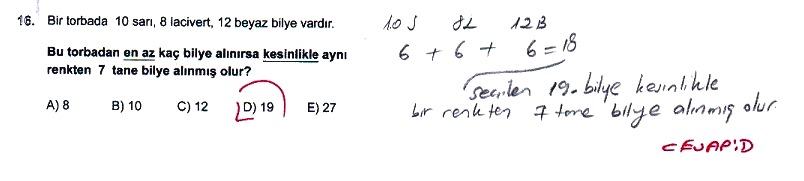 16. Bir torbada 10 sarı, 8 lacivert, 12 beyaz bilye vardır.
Bu torbadan en az kaç bilye alınırsa kesinlikle aynı
renkten 7 tane bilye alınmış olur?
A) 8 B) 10 C) 12 D) 19 E) 27
10S 8L 12B
6 + 6 + 6 = 18
seçilen 19. bilye kesinlikle
bir renkten 7 tane bilye alınmış olur.
CEVAP: D